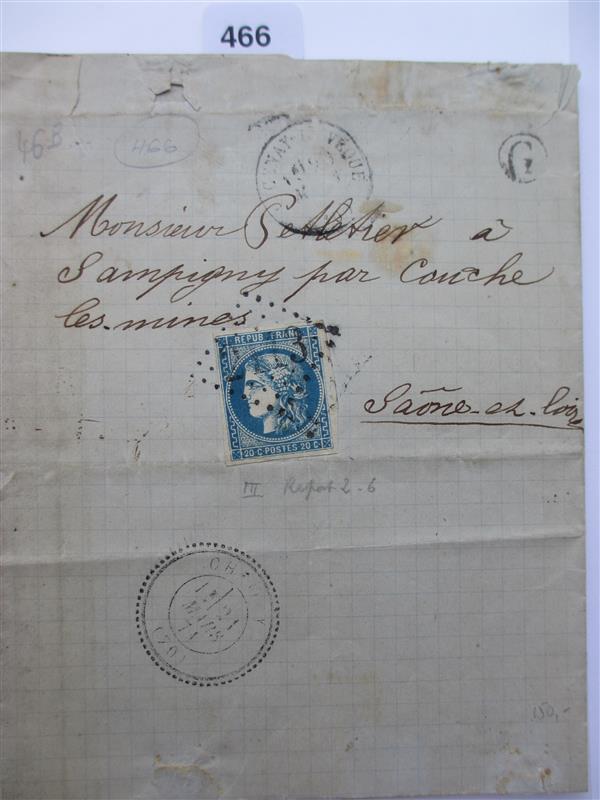 466
46B
466
G
Monsieur Pelletier à
Sampigny par Couche
les mines
REPUB FRANC
3
20 C POSTES 20 C
Saône-et-Loire
III Report 2-6
MARS
71
(70)
150,-